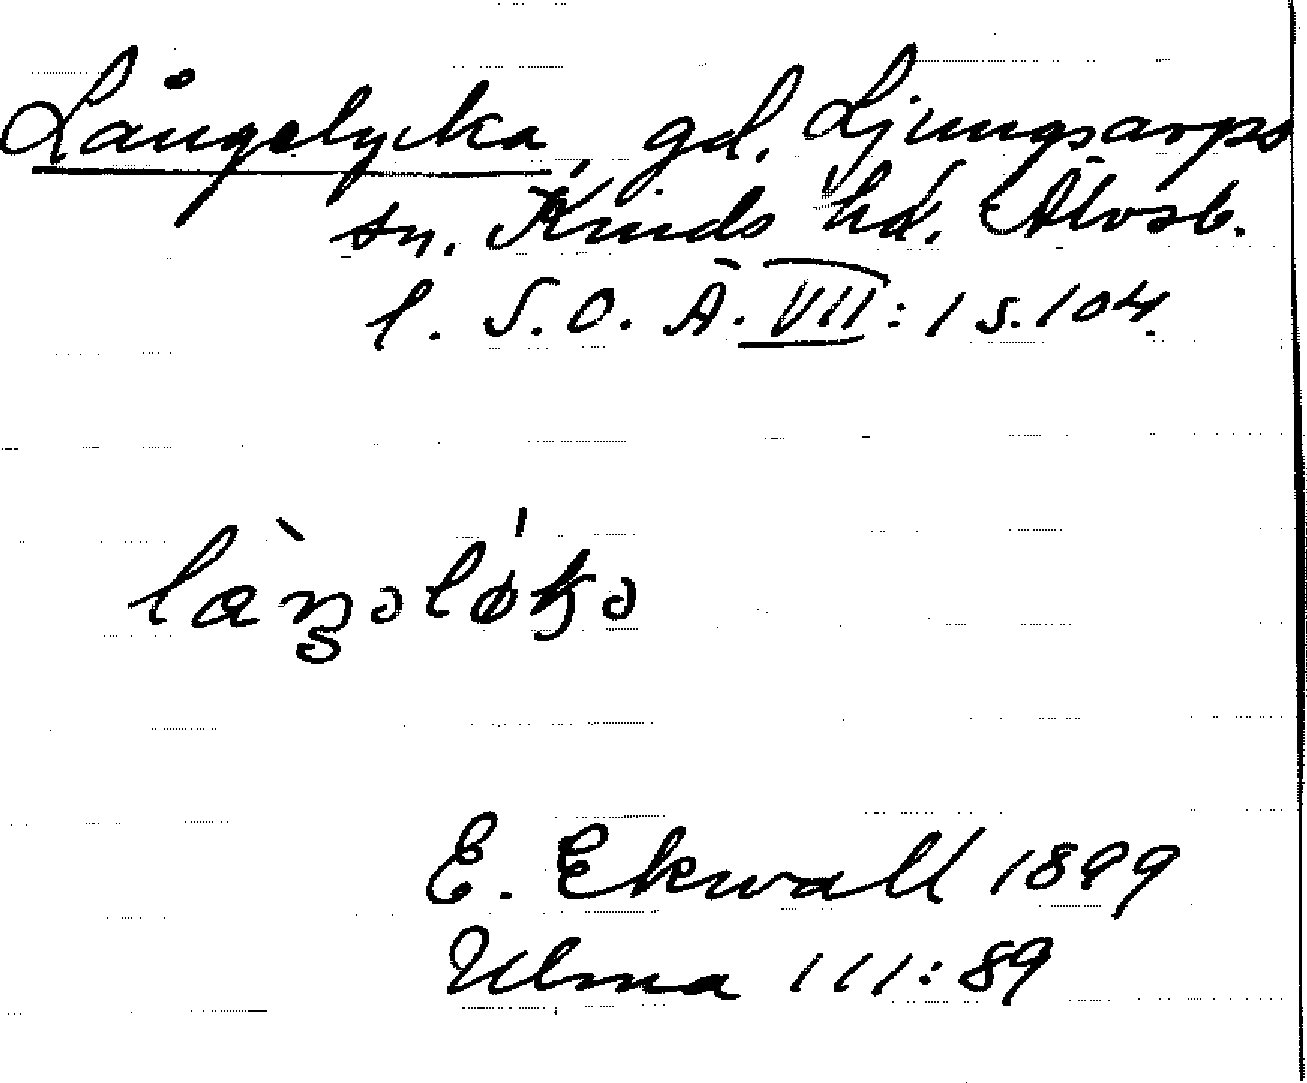 Långelycka, gd. Ljungsarps
sn. Kinds hd. Älvsb.
l. S.O.Ä. VII:1 s.104.
E. Ekwall 1899
Ulma 111:89